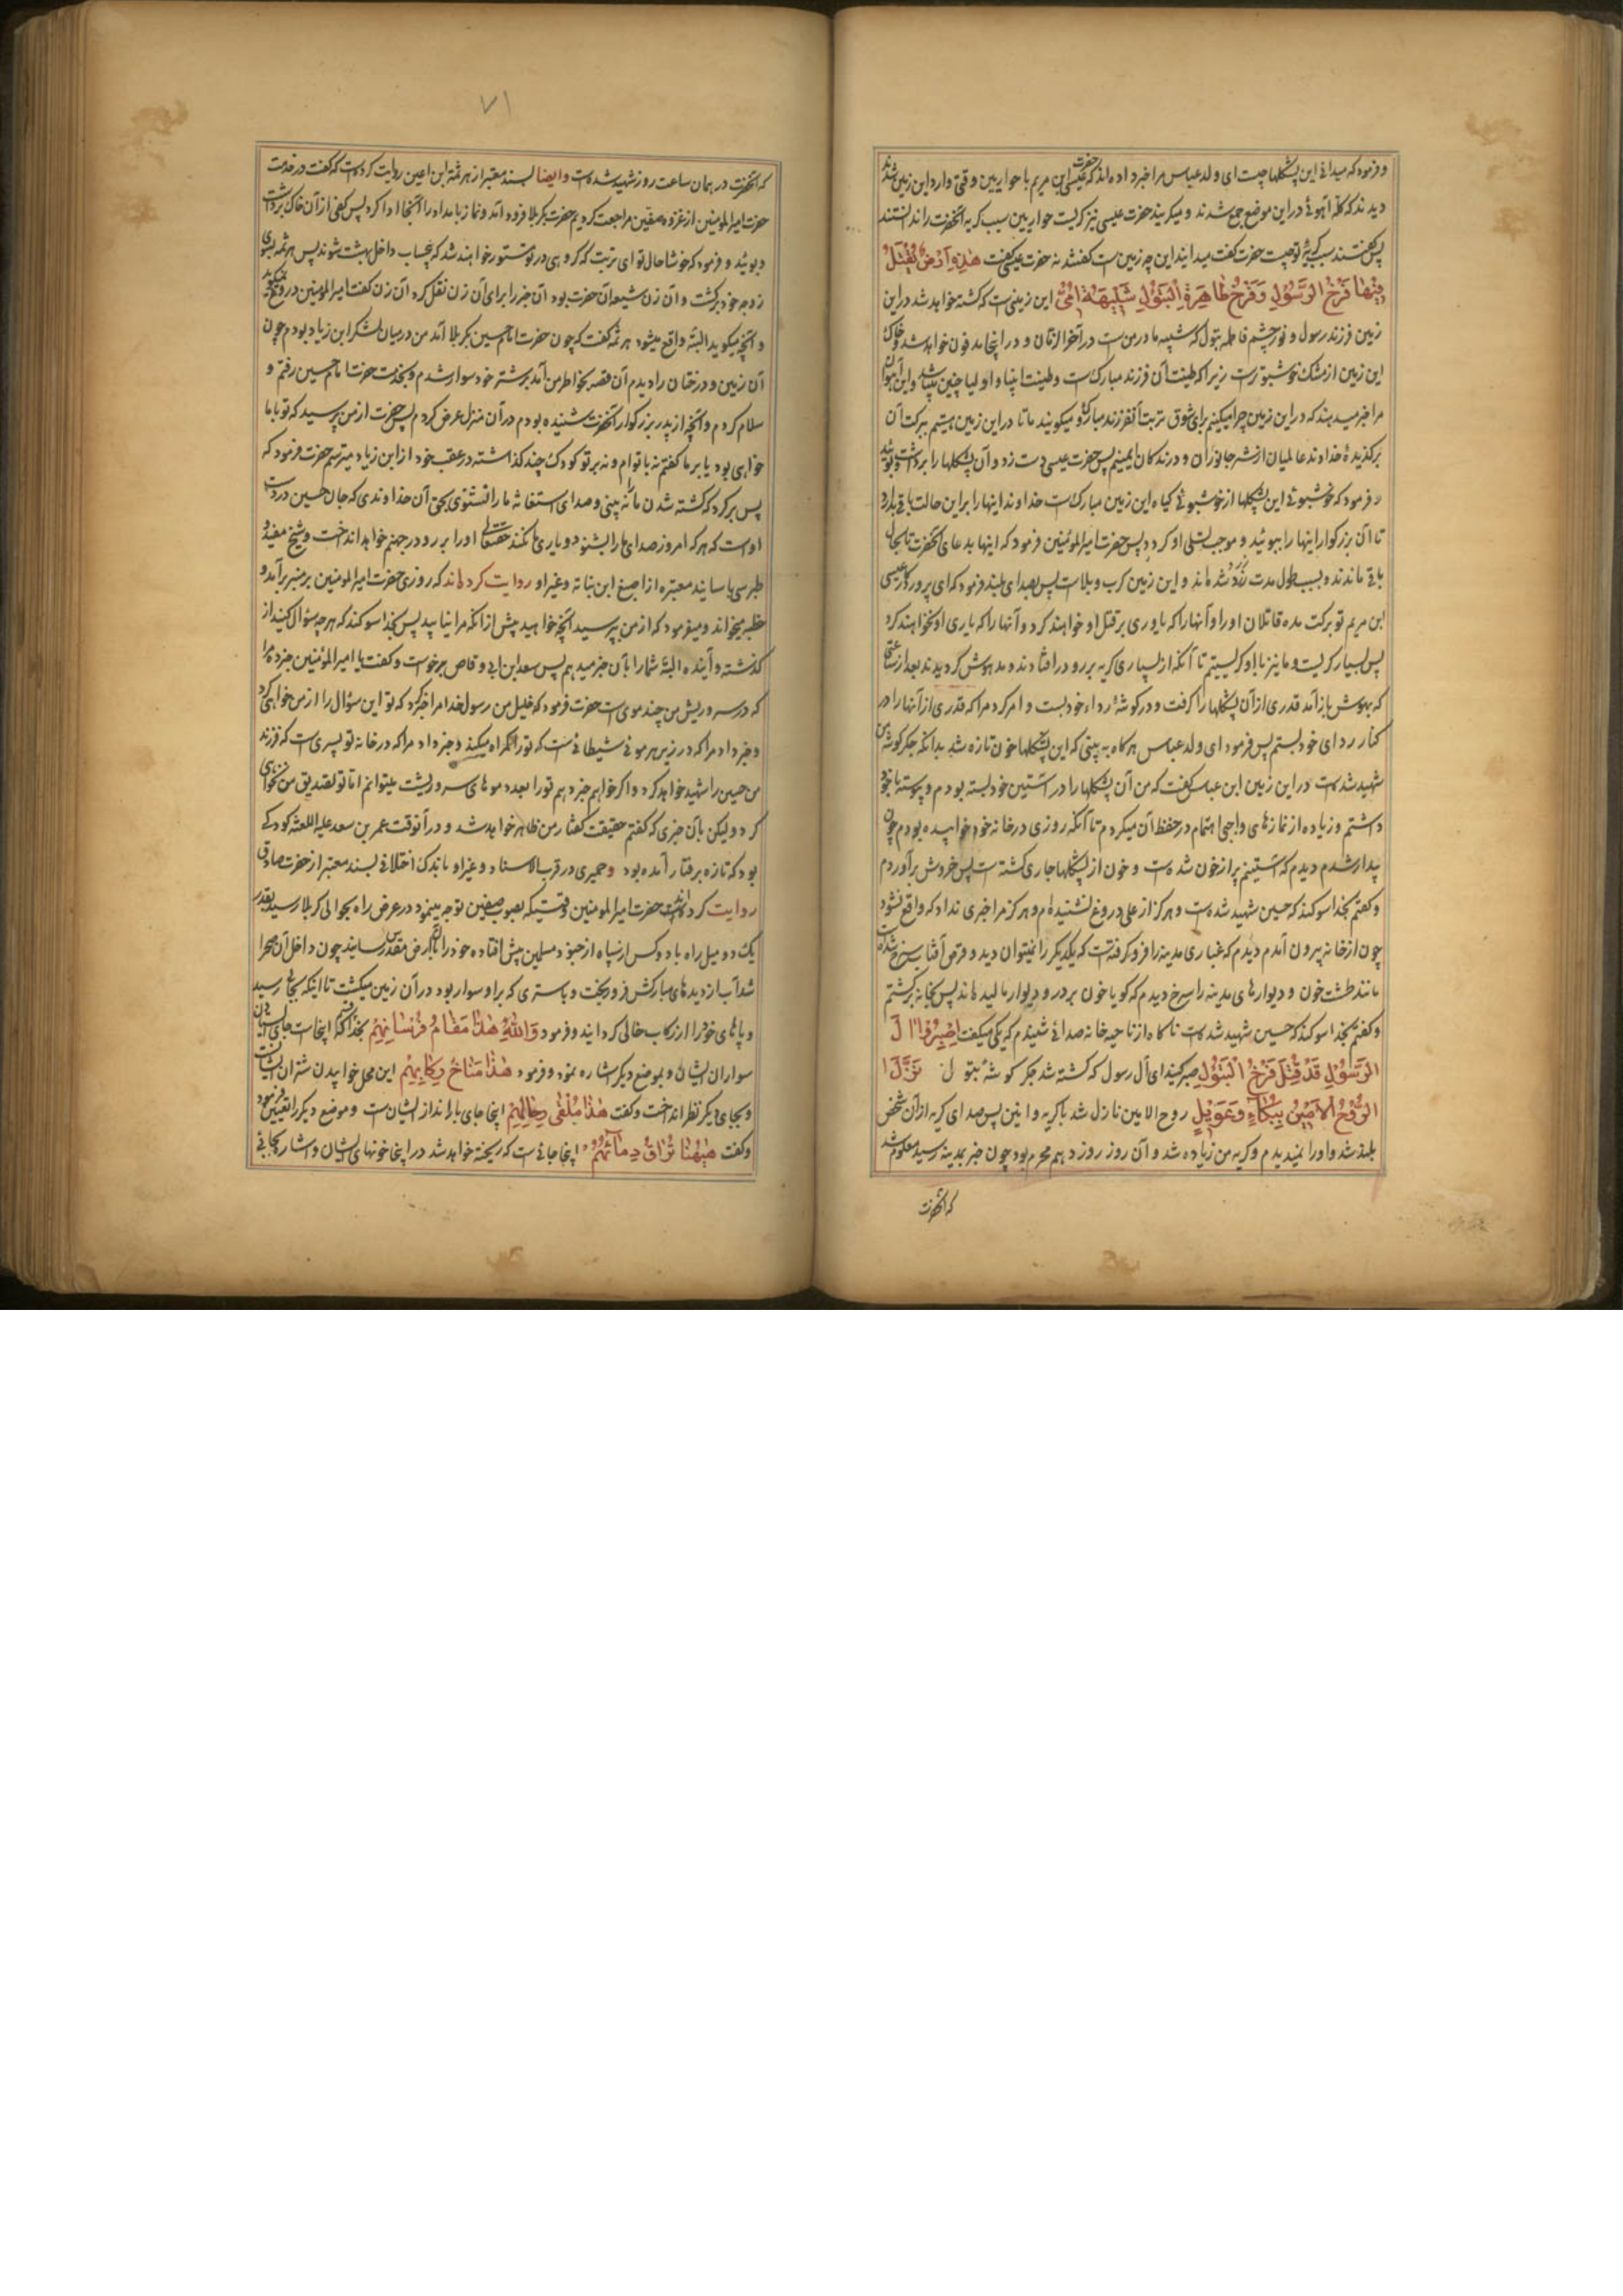 و فرمود که میدانی این پشکلها چیست ای ولد عباس مرا خبر داده اند که حضرت عیسی ابن مریم با حواریین وقتی وارد این زمین شدند
دیدند که گله آهوئی در این موضع جمع شدند و میگریند حضرت عیسی نیز گریست حواریین سبب گریه آنحضرت را ندانستند
پس گفتند سبب گریهٔ تو چیست حضرت گفت میدانید این چه زمین است گفتند نه حضرت عیسی گفت هٰذِهِ اَرْضٌ يُقْتَلُ
فِيْهَا فَرْخُ الرَّسُوْلِ وَفَرْخُ طَاهِرَةِ الْبَتُوْلِ شَبِيْهَةُ اُمِّيْ این زمینی است که کشته خواهد شد در این
زمین فرزند رسول و نور چشم فاطمه بتول که شبیه مادر من است در آخر الزمان و در اینجا مدفون خواهد شد و خاک
این زمین از مشک خوشبوتر است زیرا که طینت آن فرزند مبارک است و طینت انبیا و اولیا چنین میباشد و این آهوان
مرا خبر میدهند که در این زمین چرا میکنیم برای شوق تربت آن فرزند مبارک و میگویند ما تا در این زمین هستیم ببرکت آن
برگزیدهٔ خداوند عالمیان از شر جانوران و درندگان ایمنیم پس حضرت عیسی دست زد و آن پشکلها را برداشت و بوئید
و فرمود که خوشبوئی این پشکلها از خوشبوئی گیاه این زمین مبارک است خداوندا اینها را بر این حالت باقی بدار
تا آن بزرگوار اینها را ببوئید و موجب تسلی او گردد پس حضرت امیر المؤمنین فرمود که اینها بدعای آنحضرت تا بحال
باقی مانده اند بسبب طول مدت زرد شده اند و این زمین کرب و بلا است پس بصدای بلند فرمود که ای پروردگار عیسی
ابن مریم تو برکت مده قاتلان او را و آنها را که یاوری بر قتل او خواهند کرد و آنها را که یاری او نخواهند کرد
پس بسیار گریست و ما نیز با او گریستیم تا آنکه از بسیاری گریه بر رو در افتادند و مدهوش گردیدند بعد از ساعتی
که بهوش باز آمد قدری از آن پشکلها را گرفت و در گوشهٔ رداء خود بست و امر کرد مرا که قدری از آنها را در
کنار ردای خود بستم پس فرمود ای ولد عباس هرگاه به بینی که این پشکلها خون تازه شد بدانکه جگر گوشه من
شهید شده است در این زمین ابن عباس گفت که من آن پشکلها را در آستین خود بسته بودم و پیوسته با خود
داشتم و زیاده از نمازهای واجبی اهتمام در حفظ آن میکردم تا آنکه روزی در خانه خود خوابیده بودم چون
بیدار شدم دیدم که آستینم پر از خون شده است و خون از پشکلها جاری گشته است پس خروش برآوردم
و گفتم بخدا سوگند که حسین شهید شده است و هرگز از علی دروغ نشنیده ام و هرگز مرا خبری نداد که واقع نشود
چون از خانه بیرون آمدم دیدم که غباری مدینه را فرو گرفته است که یکدیگر را نمیتوان دید و قرص آفتاب سرخ شده است
مانند طشت خون و دیوارهای مدینه را سرخ دیدم که گویا خون بر در و دیوار مالیده اند پس بخانه برگشتم
و گفتم بخدا سوگند که حسین شهید شده است ناگاه از ناحیه خانه صدائی شنیدم که یکی میگفت اِصْبِرُوْا اٰلَ
الرَّسُوْلِ قَدْ قُتِلَ فَرْخُ الْبَتُوْلِ صبر کنید ای آل رسول که کشته شد جگر گوشهٔ بتول نَزَّلَ
الرُّوْحُ الْاَمِيْنُ بِبُكَاءٍ وَعَوِيْلٍ روح الامین نازل شد با گریه و انین پس صدای گریه از آن شخص
بلند شد و او را نمیدیدم و گریه من زیاده شد و آن روز روز دهم محرم بود چون خبر بمدینه رسید معلوم شد
که آنحضرت
۷۱
که آنحضرت در همان ساعت روز شهید شده است وایضا بسند معتبر از هرثمة ابن اعین روایت کرده است که گفت در خدمت
حضرت امیر المومنین از غزوه صفین مراجعت کردیم حضرت بکربلا فرود آمد و نماز بامداد را آنجا ادا کرد پس کفی از آن خاک برداشت
و بوئید و فرمود که خوشا حال تو ای تربت که گروهی در تو محشور خواهند شد که بیحساب داخل بهشت شوند پس هرثمه بسوی
زوجه خود برگشت و آن زن شیعه آن حضرت بود آن خبر را برای آن زن نقل کرد آن زن گفت امیر المؤمنین دروغ نمیگوید
و آنچه میگوید البته واقع میشود هرثمه گفت که چون حضرت امام حسین بکربلا آمد من در میان لشکر ابن زیاد بودم چون
آن زمین و درختان را دیدم آن قصه بخاطر من آمد بر شتر خود سوار شدم و بخدمت حضرت امام حسین رفتم و
سلام کردم و آنچه از پدر بزرگوار آنحضرت شنیده بودم در آن منزل عرض کردم پس حضرت از من پرسید که تو با ما
خواهی بود یا بر ما گفتم نه با تو ام و نه بر تو کودک چند گذاشته در عقب خود از ابن زیاد میترسم حضرت فرمود که
پس برگرد که کشته شدن ما نه بینی و صدای استغاثه ما را نشنوی بحق آن خداوندی که جان حسین در دست
اوست که هر که امروز صدای ما را بشنود و یاری ما نکند حقتعالی او را بر رو در جهنم خواهد انداخت و شیخ مفید و
طبرسی باسانید معتبره از اصبغ ابن نباته و غیر او روایت کرده اند که روزی حضرت امیر المومنین بر منبر برآمد و
خطبه میخواند و میفرمود که از من بپرسید آنچه خواهید پیش از آنکه مرا نیابید پس بخدا سوگند که هر چه سؤال کنید از
گذشته و آینده البته شما را بآن خبر میدهم پس سعد ابن ابی وقاص برخواست و گفت یا امیر المؤمنین خبر ده مرا
که در سر و ریش من چند موی است حضرت فرمود که خلیل من رسول خدا مرا خبر کرد که تو این سؤال را از من خواهی کرد
و خبر داد مرا که در زیر هر موئی شیطانی است که تو را گمراه میکند و خبر داد مرا که در خانه تو پسری است که فرزند
من حسین را شهید خواهد کرد و اگر خواهم خبر دهم تو را بعدد موهای سر و ریشت میتوانم اما تو تصدیق من نخواهی
کرد ولیکن بآن خبری که گفتم حقیقت گفتار من ظاهر خواهد شد و در آنوقت عمر بن سعد علیه اللعنه کودکی
بود که تازه برفتار آمده بود و حمیری در قرب الاسناد و غیر او باندک اختلافی بسند معتبر از حضرت صادق
روایت کرده است حضرت امیر المومنین وقتیکه بصوب صفین توجه مینمود در عرض راه بحوالی کربلا رسید بقدر
یک دو میل راه با دو کس از سپاه از جنود مسلمین پیش افتاده خود را بآن ارض مقدس رسانید چون داخل آن صحرا
شد آب از دیدهای مبارکش فرو ریخت و باستری که بر او سوار بود در آن زمین میگشت تا اینکه بجائی رسید
و پاهای خود را از رکاب خالی گردانید و فرمود وَاللّٰهِ هٰذَا مَقَامُ فُرْسَانِهِمْ بخدا قسم اینجاست جای
سواران ایشان و بموضع دیگر اشاره نمود و فرمود هٰذَا مَنَاخُ رِكَابِهِمْ این محل خوابیدن شتران ایشانست
و بجای دیگر نظر انداخت و گفت هٰذَا مُلْقٰی رِحَالِهِمْ اینجا جای بار انداز ایشان است و موضع دیگر را تعیین فرمود
و گفت هٰهُنَا تُرَاقُ دِمَائُهُمْ اینجا جائی است که ریخته خواهد شد در اینجا خونهای ایشان و اشاره بجائی